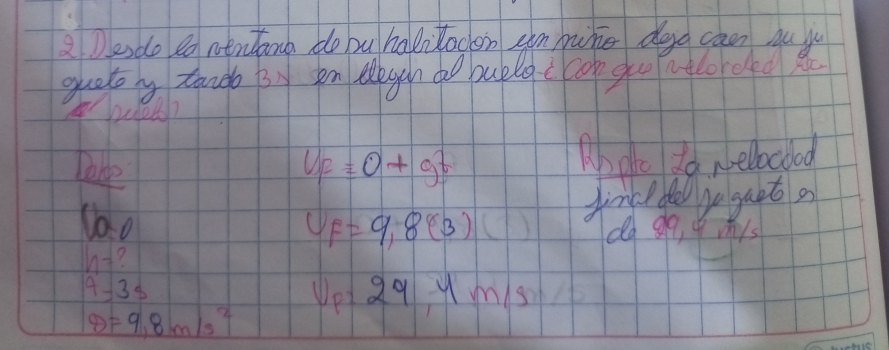 2. Desde la ventana de su habitación un niño deja caer su ju
guete y tarda 3s en llegar al suelo ¿Con que velocidad
suelo?
Datos
Vo=0
h=?
t=3s
g=9,8 m/s²
VF = 0 + gt
VF = 9,8 (3)
VF= 29,4 m/s
Rspta La velocidad
final del juguete es
de 29,4 m/s